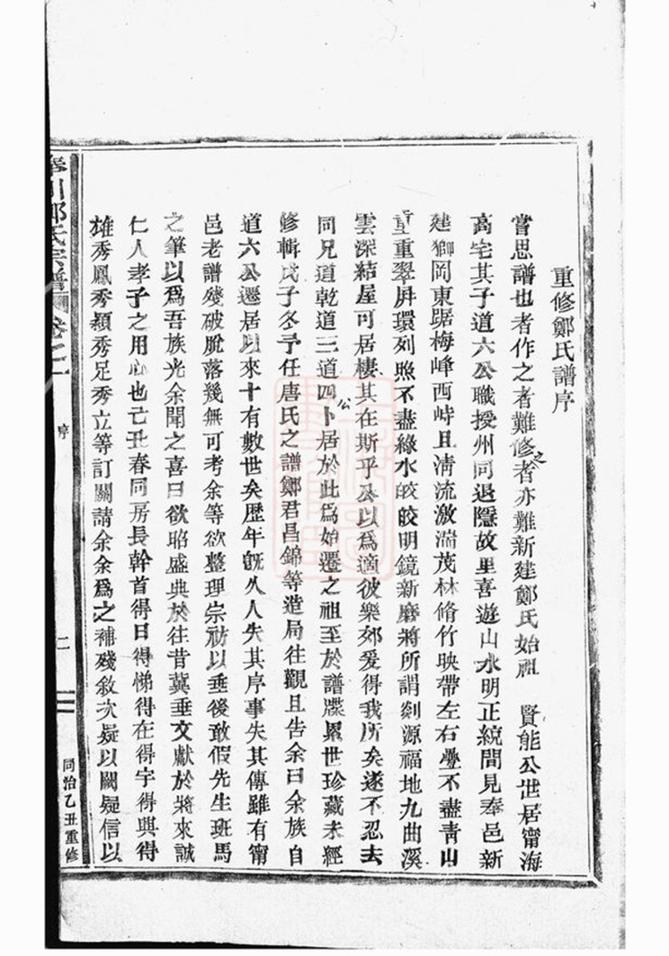 重修鄭氏譜序
嘗思譜也者作之者難修之者亦難新建鄭氏始祖　賢能公世居甯海
高宅其子道六公職授州同退隱故里喜遊山水明正統間見奉邑新
建獅岡東踞梅峰西峙且清流激湍茂林脩竹映帶左右疊不盡青山
重重翠屏環列照不盡綠水皎皎明鏡新磨將所謂剡源福地九曲溪
雲深結屋可居棲其在斯乎公以爲適彼樂郊爰得我所矣遂不忍去
同兄道乾道三道四公卜居於此爲始遷之祖至於譜牒累世珍藏未經
修輯癸子冬予任唐氏之譜鄭君昌錦等造局往觀且告余曰余族自
道六公遷居以來十有數世矣歷年旣久人失其序事失其傳雖有甯
邑老譜殘破脫落幾無可考余等欲整理宗祊以垂後敢假先生班馬
之筆以爲吾族光余聞之喜曰欲昭盛典於往昔冀垂文獻於將來誠
仁人孝子之用心也乙丑春同房長幹首得日得悌得在得宇得與得
雄秀鳳秀穎秀足秀立等訂關請余余爲之補殘敘次疑以闕疑信以
奉川鄭氏宗譜　卷之一　序　二　同治乙丑重修